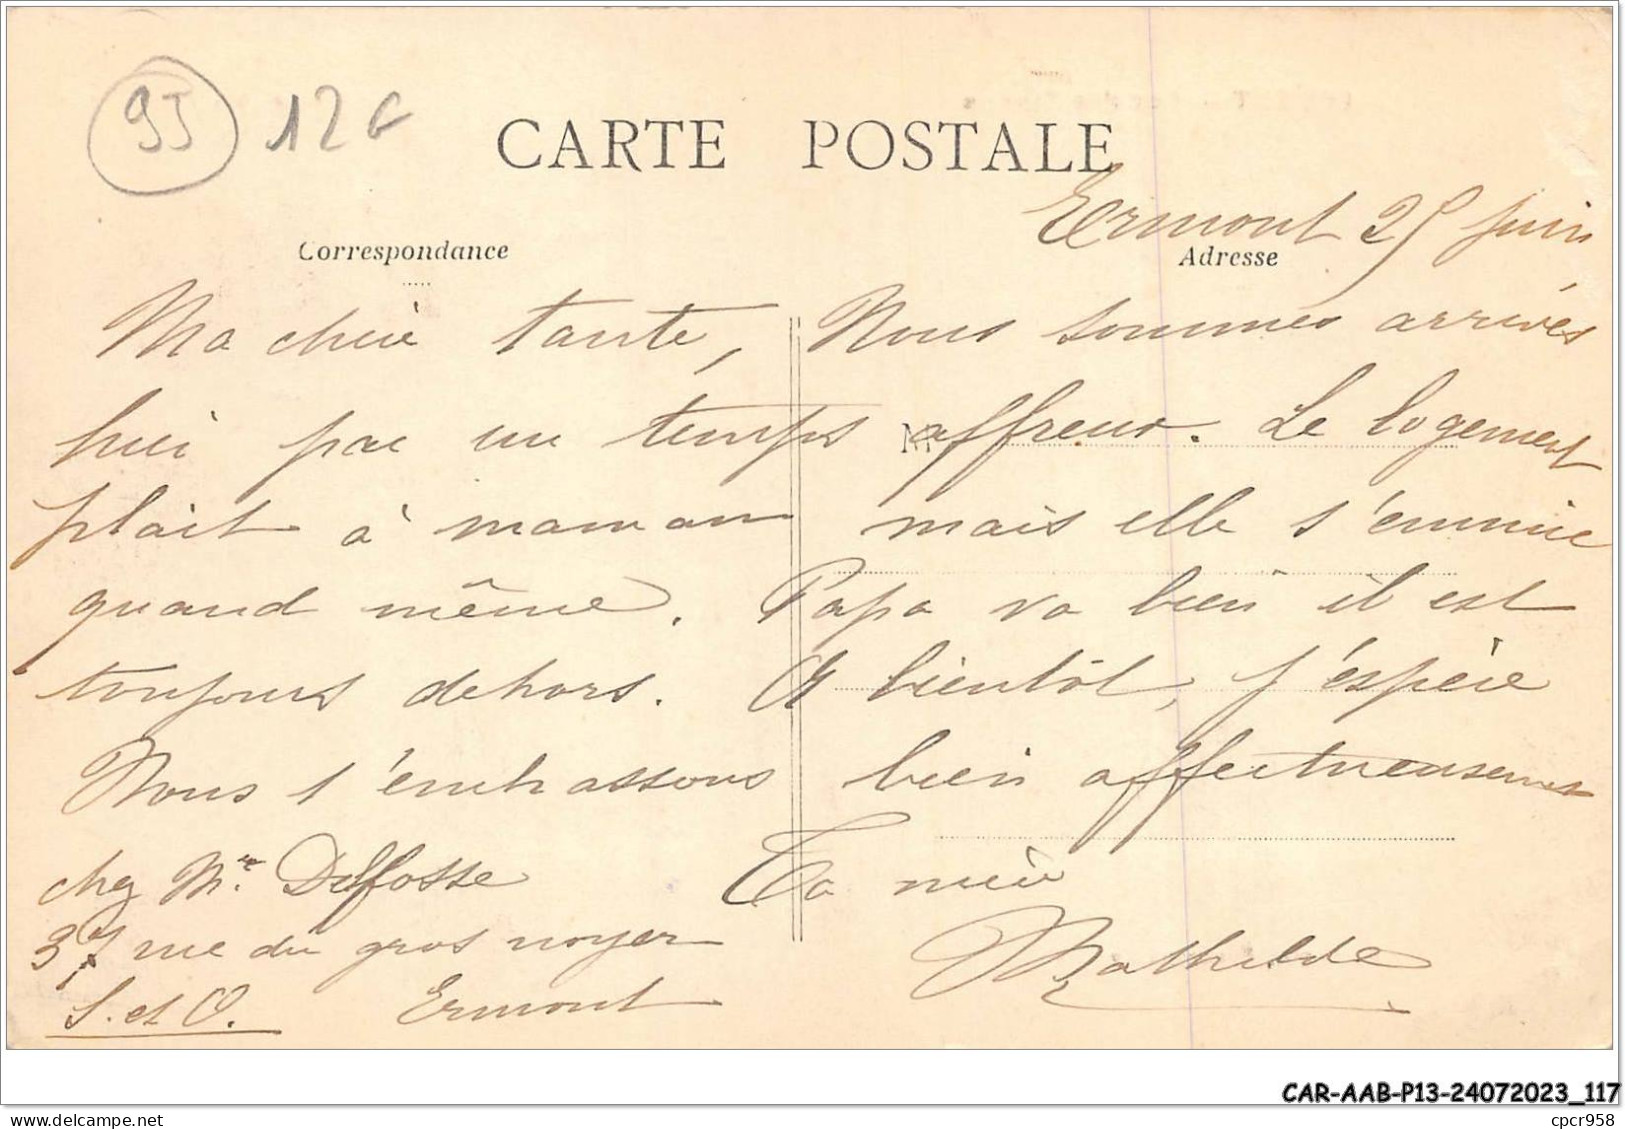 95 12 €
CARTE POSTALE
Ermont 25 juin
Correspondance
Adresse
Ma chère tante, Nous sommes arrivés
hier par un temps affreux. Le logement
M
plait à maman mais elle s'ennuie
quand même. Papa va bien il est
toujours dehors. A bientôt, j'espère
Nous t'embrassons bien affectueusement
Ta nièce
Mathilde
chez Mr. Deffosse
37 rue du gros noyer
S. et O. Ermont
CAR-AAB-P13-24072023_117
cpcr958